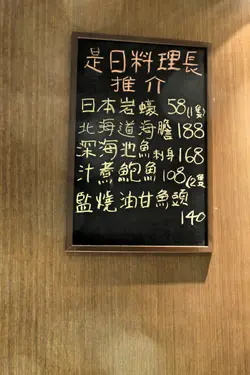 是日料理長
推介
日本岩蠔 58(1隻)
北海道海膽 188
深海池魚刺身 168
汁煮鮑魚 108(2隻
監燒油甘魚頭
140